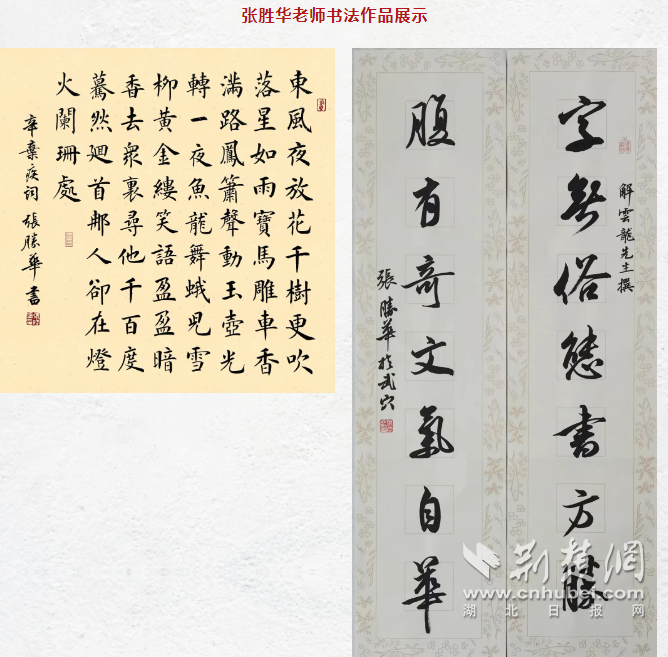 张胜华老师书法作品展示
東風夜放花千樹更吹
落星如雨寶馬雕車香
满路鳳簫聲動玉壺光
轉一夜魚龍舞蛾兒雪
柳黃金縷笑語盈盈暗
香去衆裏尋他千百度
驀然廻首那人卻在燈
火闌珊處
辛棄疾词 張勝華書
解雲龍先生撰
字無俗態書方勝
腹有奇文氣自華
張勝華於武穴
荆楚網
www.cnhubei.com
湖北日报网